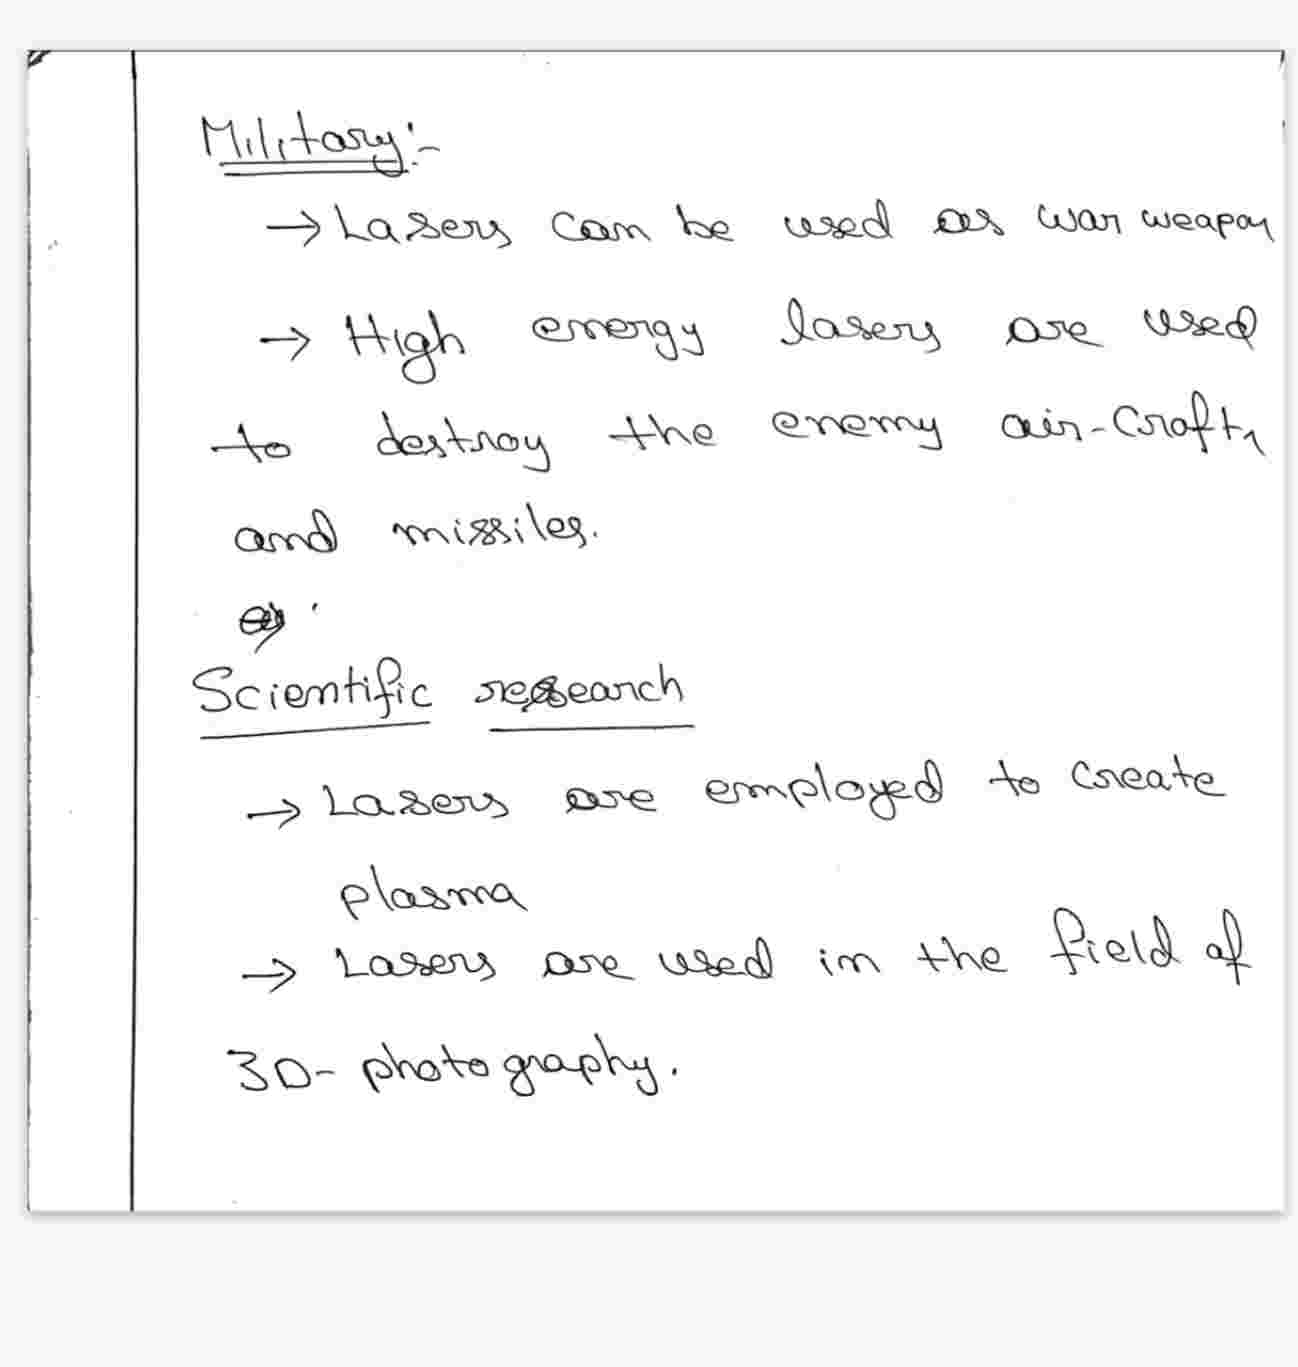 Military:-
→ Lasers can be used as war weapon
→ High energy lasers are used
to destroy the enemy air-craft,
and missiles.
Scientific research
→ Lasers are employed to create
plasma
→ Lasers are used in the field of
3D- photography.